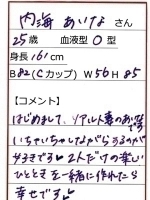 内海 あいな さん
25歳 血液型 O型
身長 161cm
B82(Cカップ) W56 H85
【コメント】
はじめまして、リアルト妻のあいな
です
いちゃいちゃしながらするのが
好きです♥ 2人だけの楽しい
ひとときを一緒に作れたら
幸せです♥